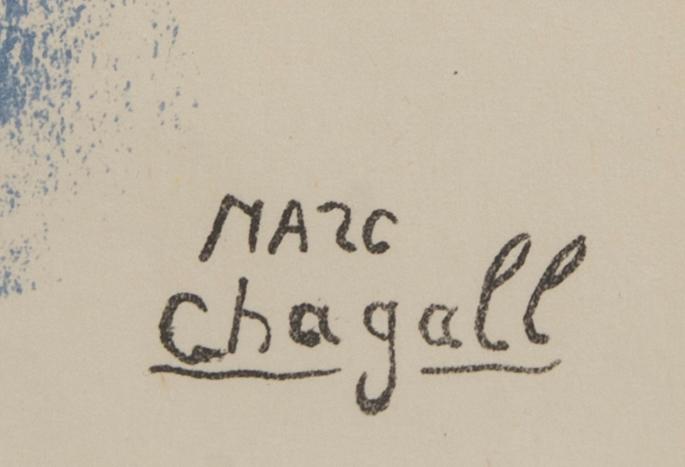 MARC
chagall